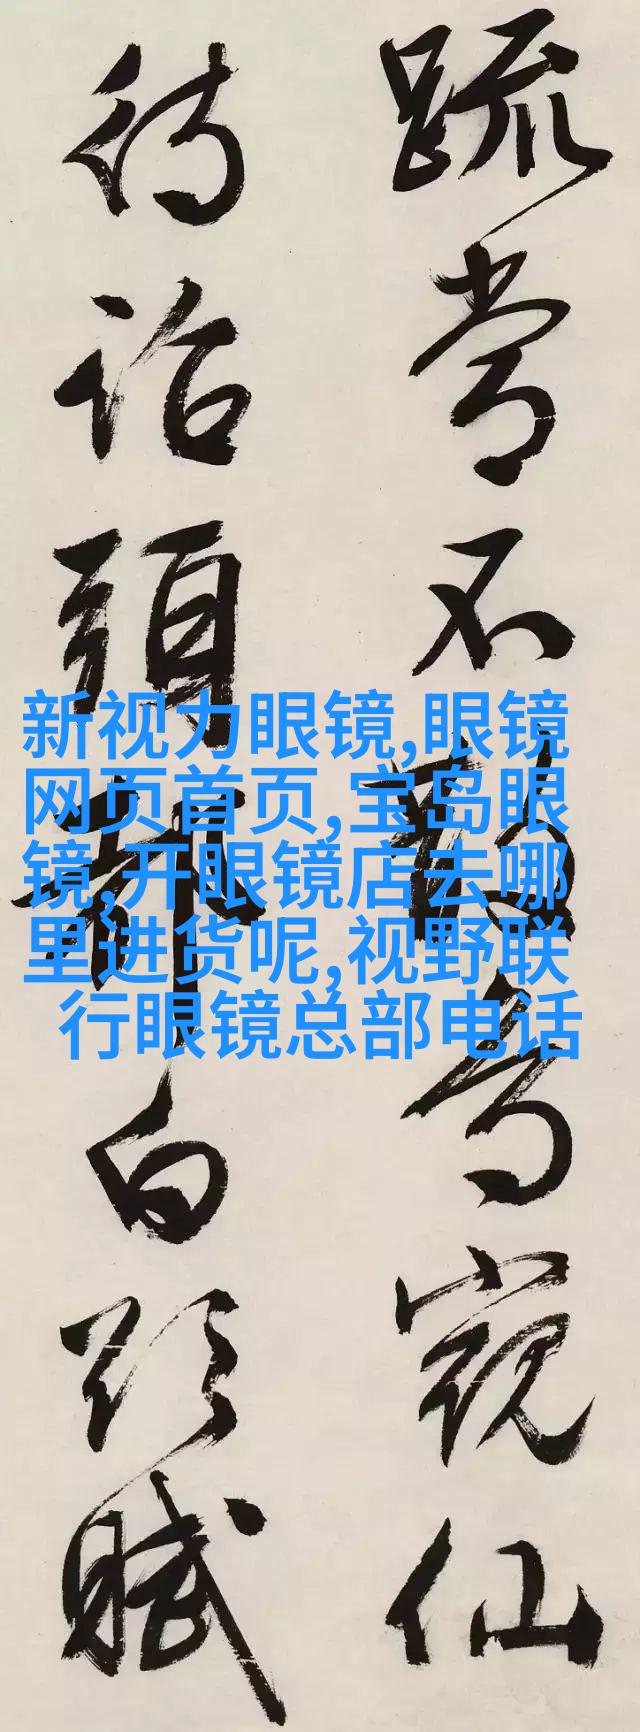 跡當不敢窺仙
待詔頭都白賦
新视力眼镜,眼镜
网页首页,宝岛眼
镜,开眼镜店去哪
里进货呢,视野联
行眼镜总部电话